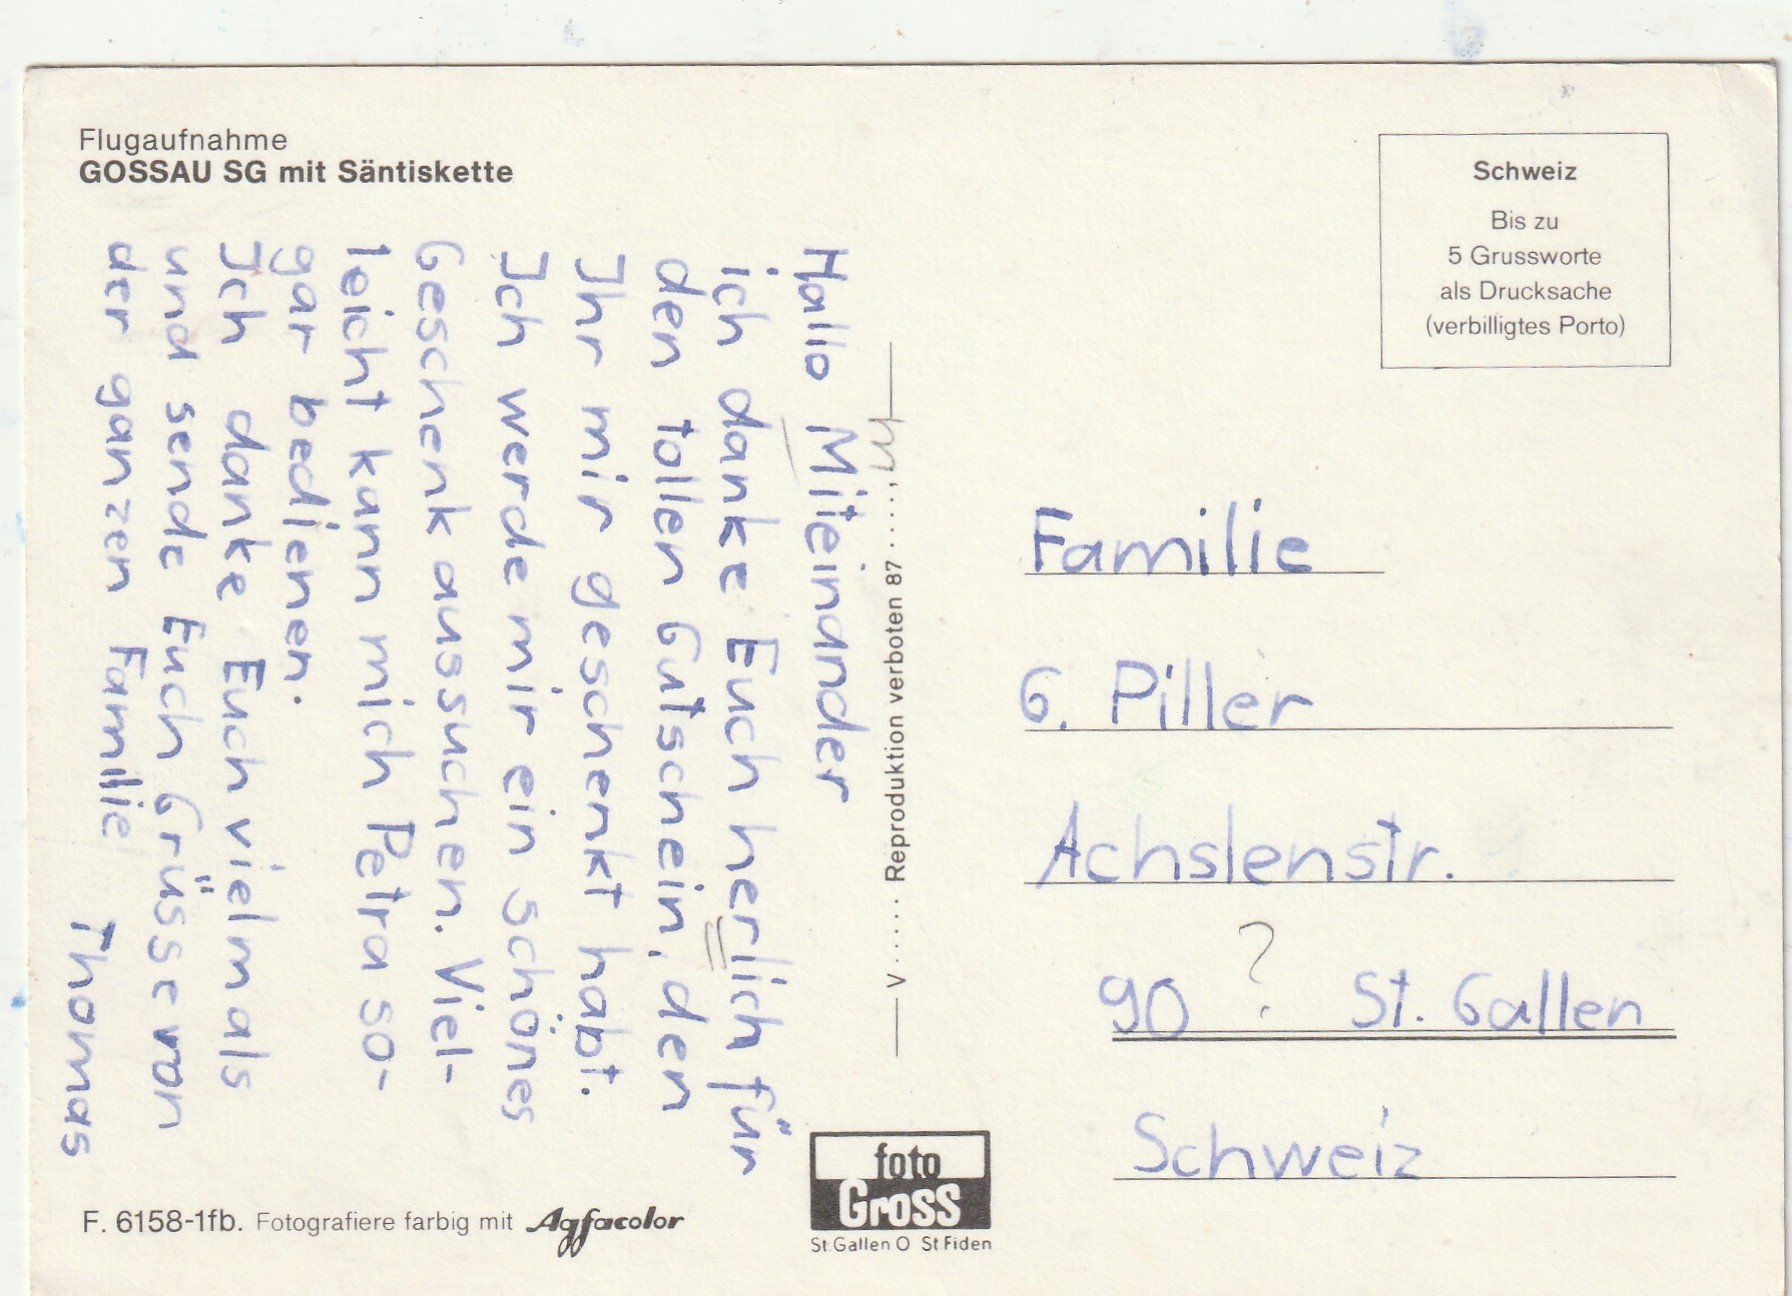 Flugaufnahme
GOSSAU SG mit Säntiskette
Hallo Miteinander
m
ich danke Euch herlich für
den tollen Gutschein, den
Ihr mir geschenkt habt.
Ich werde mir ein schönes
Geschenk aussuchen. Viel-
leicht kann mich Petra so-
gar bedienen.
Ich danke Euch vielmals
und sende Euch Grüsse von
der ganzen Familie
Thomas
V..... Reproduktion verboten 87.....,
Schweiz
Bis zu
5 Grussworte
als Drucksache
(verbilligtes Porto)
Familie
G. Piller
Achslenstr.
90 ? St. Gallen
Schweiz
F. 6158-1fb. Fotografiere farbig mit Agfacolor
foto
Gross
St.Gallen O St.Fiden